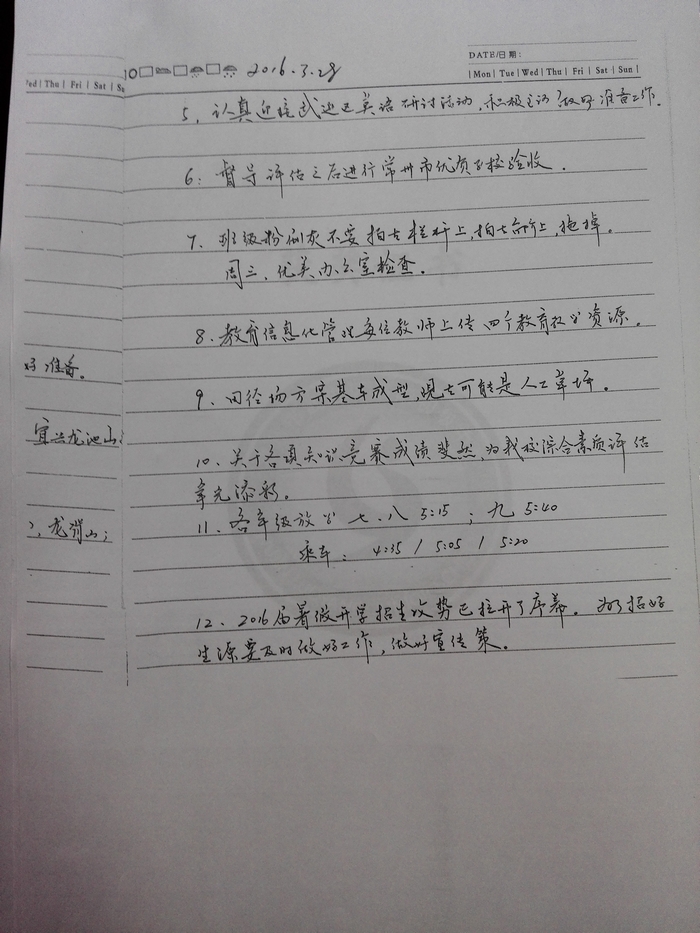 DATE/日期:
2016.3.28
Wed | Thu | Fri | Sat | Su
| Mon | Tue | Wed | Thu | Fri | Sat | Sun |
5. 认真迎接武进区英语研讨活动,积极主动做好准备工作.
6: 督导评估之后进行常州市优质学校验收.
7、班级粉刷灰不要拍在栏杆上,拍在台阶上,拖掉。
周三、优美办公室检查.
8、教育信息化管理每位教师上传四个教育教学资源.
好准备。
9、田径场方案基本成型,现在可能是人工草坪。
宜兴龙池山
10、关于各项知识竞赛成绩斐然,为我校综合素质评估
争光添彩。
11、各年级放学 七、八 5:15 ; 九 5:40
龙背山;
乘车: 4:35 / 5:05 / 5:20
12、2016届暑假开学招生攻势已拉开了序幕. 为了招好
生源要及时做好工作,做好宣传策。